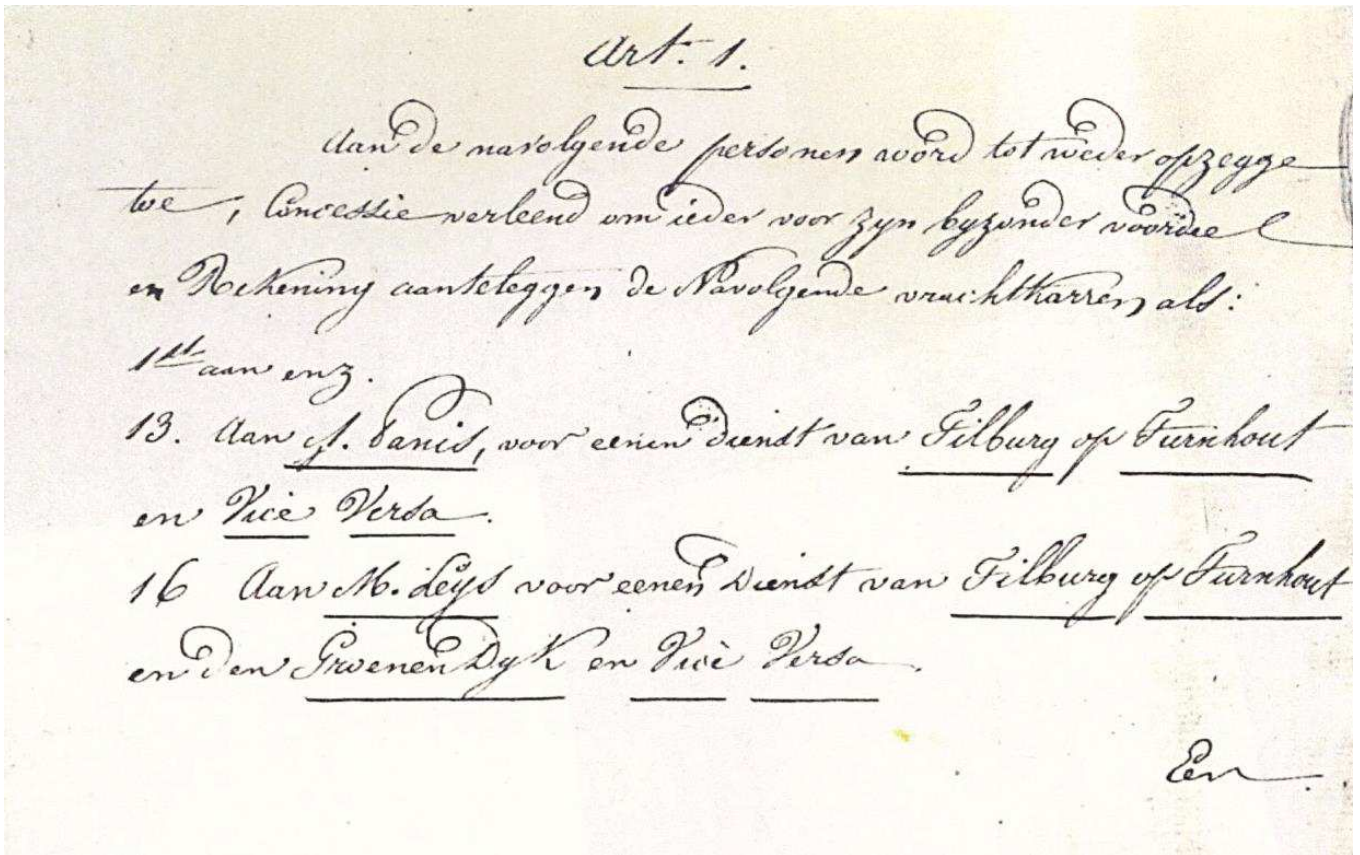 Art. 1.
Aan de navolgende personen word tot weder opzegge
toe, Concessie verleend om ieder voor zyn byzonder voordeel
en Rekening aanteleggen de Navolgende vrachtkarren als:
1st aan enz.
13. Aan A. Panis, voor eenen dienst van Tilburg op Turnhout
en Vice Versa.
16 Aan M. Leys voor eenen Dienst van Tilburg op Turnhout
en den Groenen Dyk en Vicè Versa.
En